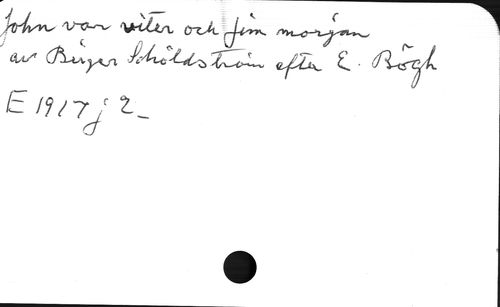 John var viter och Jim morjan
av Birger Schöldström efter E. Bögh
E 1917 j 2_